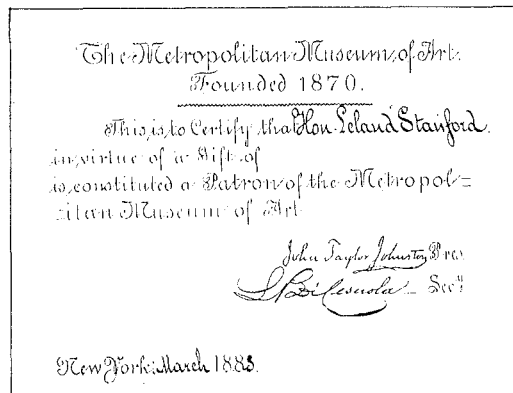 The Metropolitan Museum of Art.
Founded 1870.
This is to Certify that Hon. Leland Stanford.
in virtue of a Gift of
is constituted a Patron of the Metropol=
itan Museum of Art
John Taylor Johnston Pres
L P di Cesnola Secy
New York, March 1883.